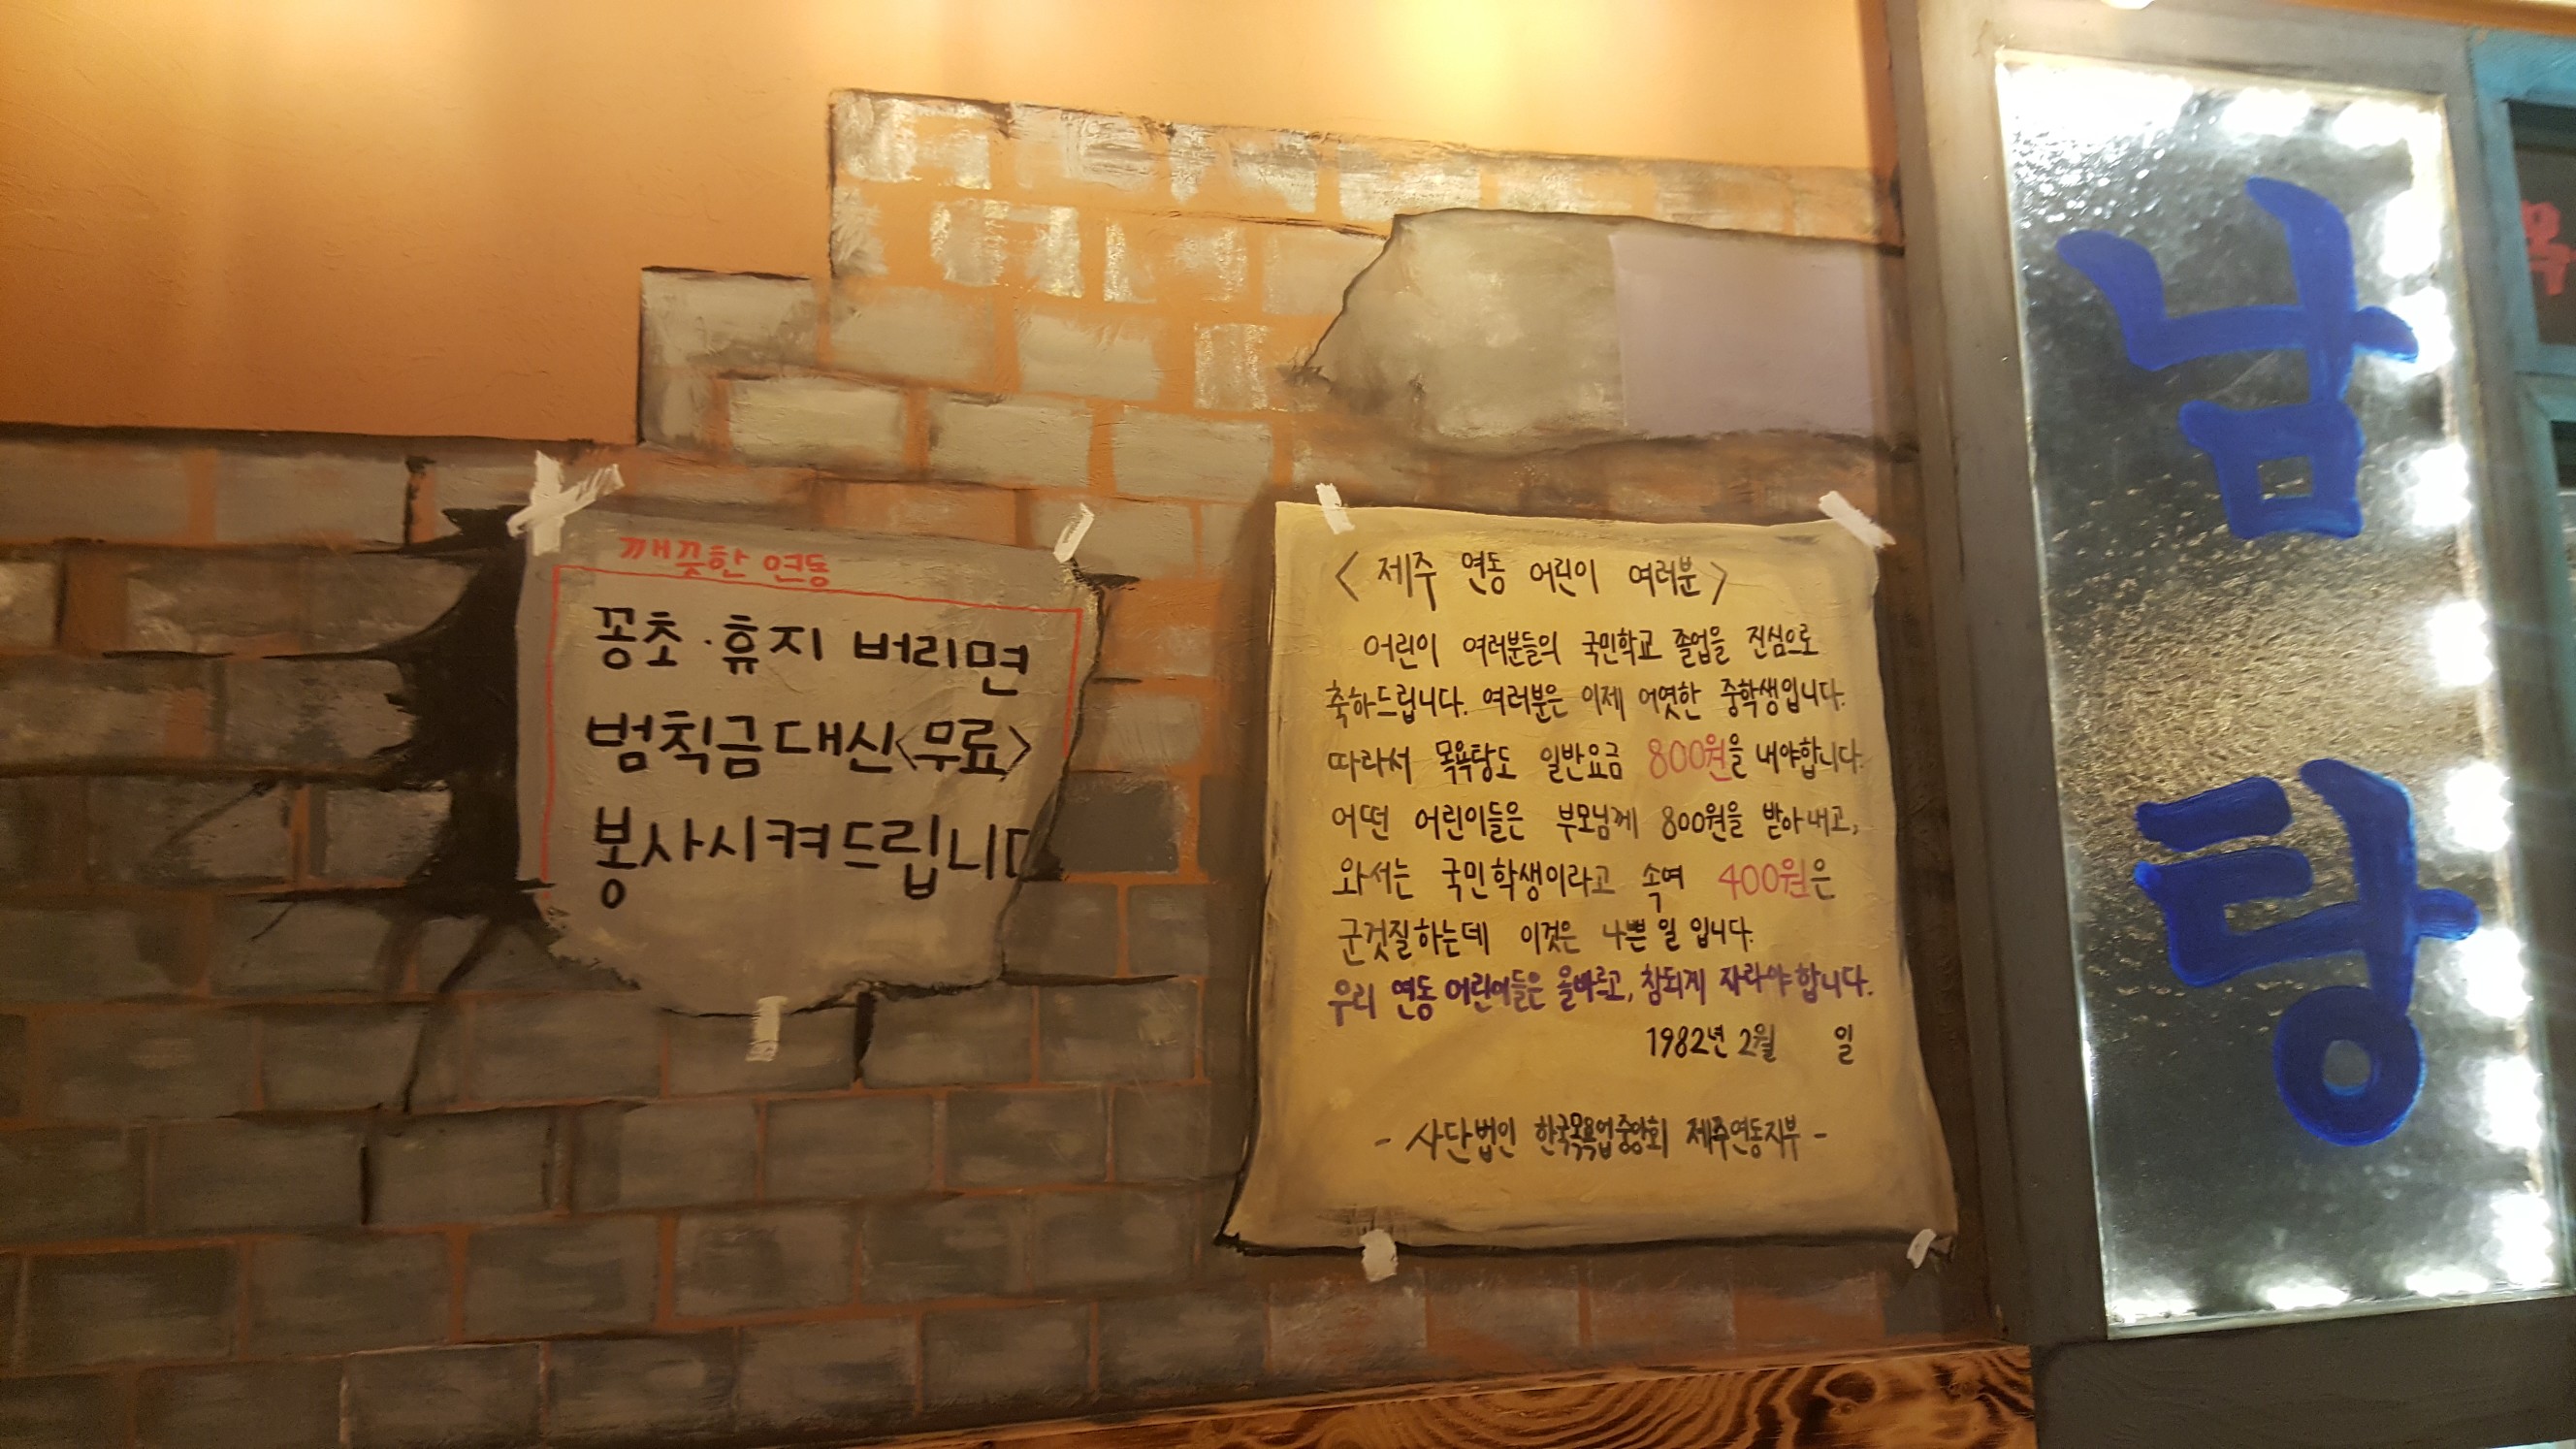 깨끗한 연동
꽁초·휴지 버리면
범칙금대신<무료>
봉사시켜드립니다
<제주 연동 어린이 여러분>
어린이 여러분들의 국민학교 졸업을 진심으로
축하드립니다. 여러분은 이제 어엿한 중학생입니다.
따라서 목욕탕도 일반요금 800원을 내야합니다.
어떤 어린이들은 부모님께 800원을 받아내고,
와서는 국민학생이라고 속여 400원은
군것질하는데 이것은 나쁜 일 입니다.
우리 연동 어린이들은 올바르고, 참되게 자라야 합니다.
1982년 2월 일
- 사단법인 한국목욕업중앙회 제주연동지부 -
남
탕
욕